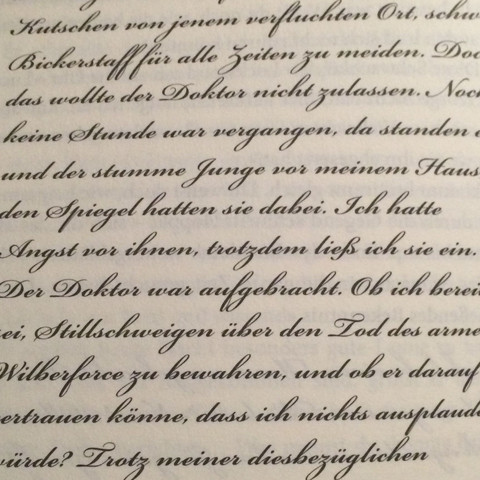 Kutschen von jenem verfluchten Ort, schw
Bickerstaff für alle Zeiten zu meiden. Doc
das wollte der Doktor nicht zulassen. Noch
keine Stunde war vergangen, da standen e
und der stumme Junge vor meinem Haus
den Spiegel hatten sie dabei. Ich hatte
Angst vor ihnen, trotzdem ließ ich sie ein.
Der Doktor war aufgebracht. Ob ich bereit
sei, Stillschweigen über den Tod des arme
Wilberforce zu bewahren, und ob er darauf
ertrauen könne, dass ich nichts ausplaude
würde? Trotz meiner diesbezüglichen